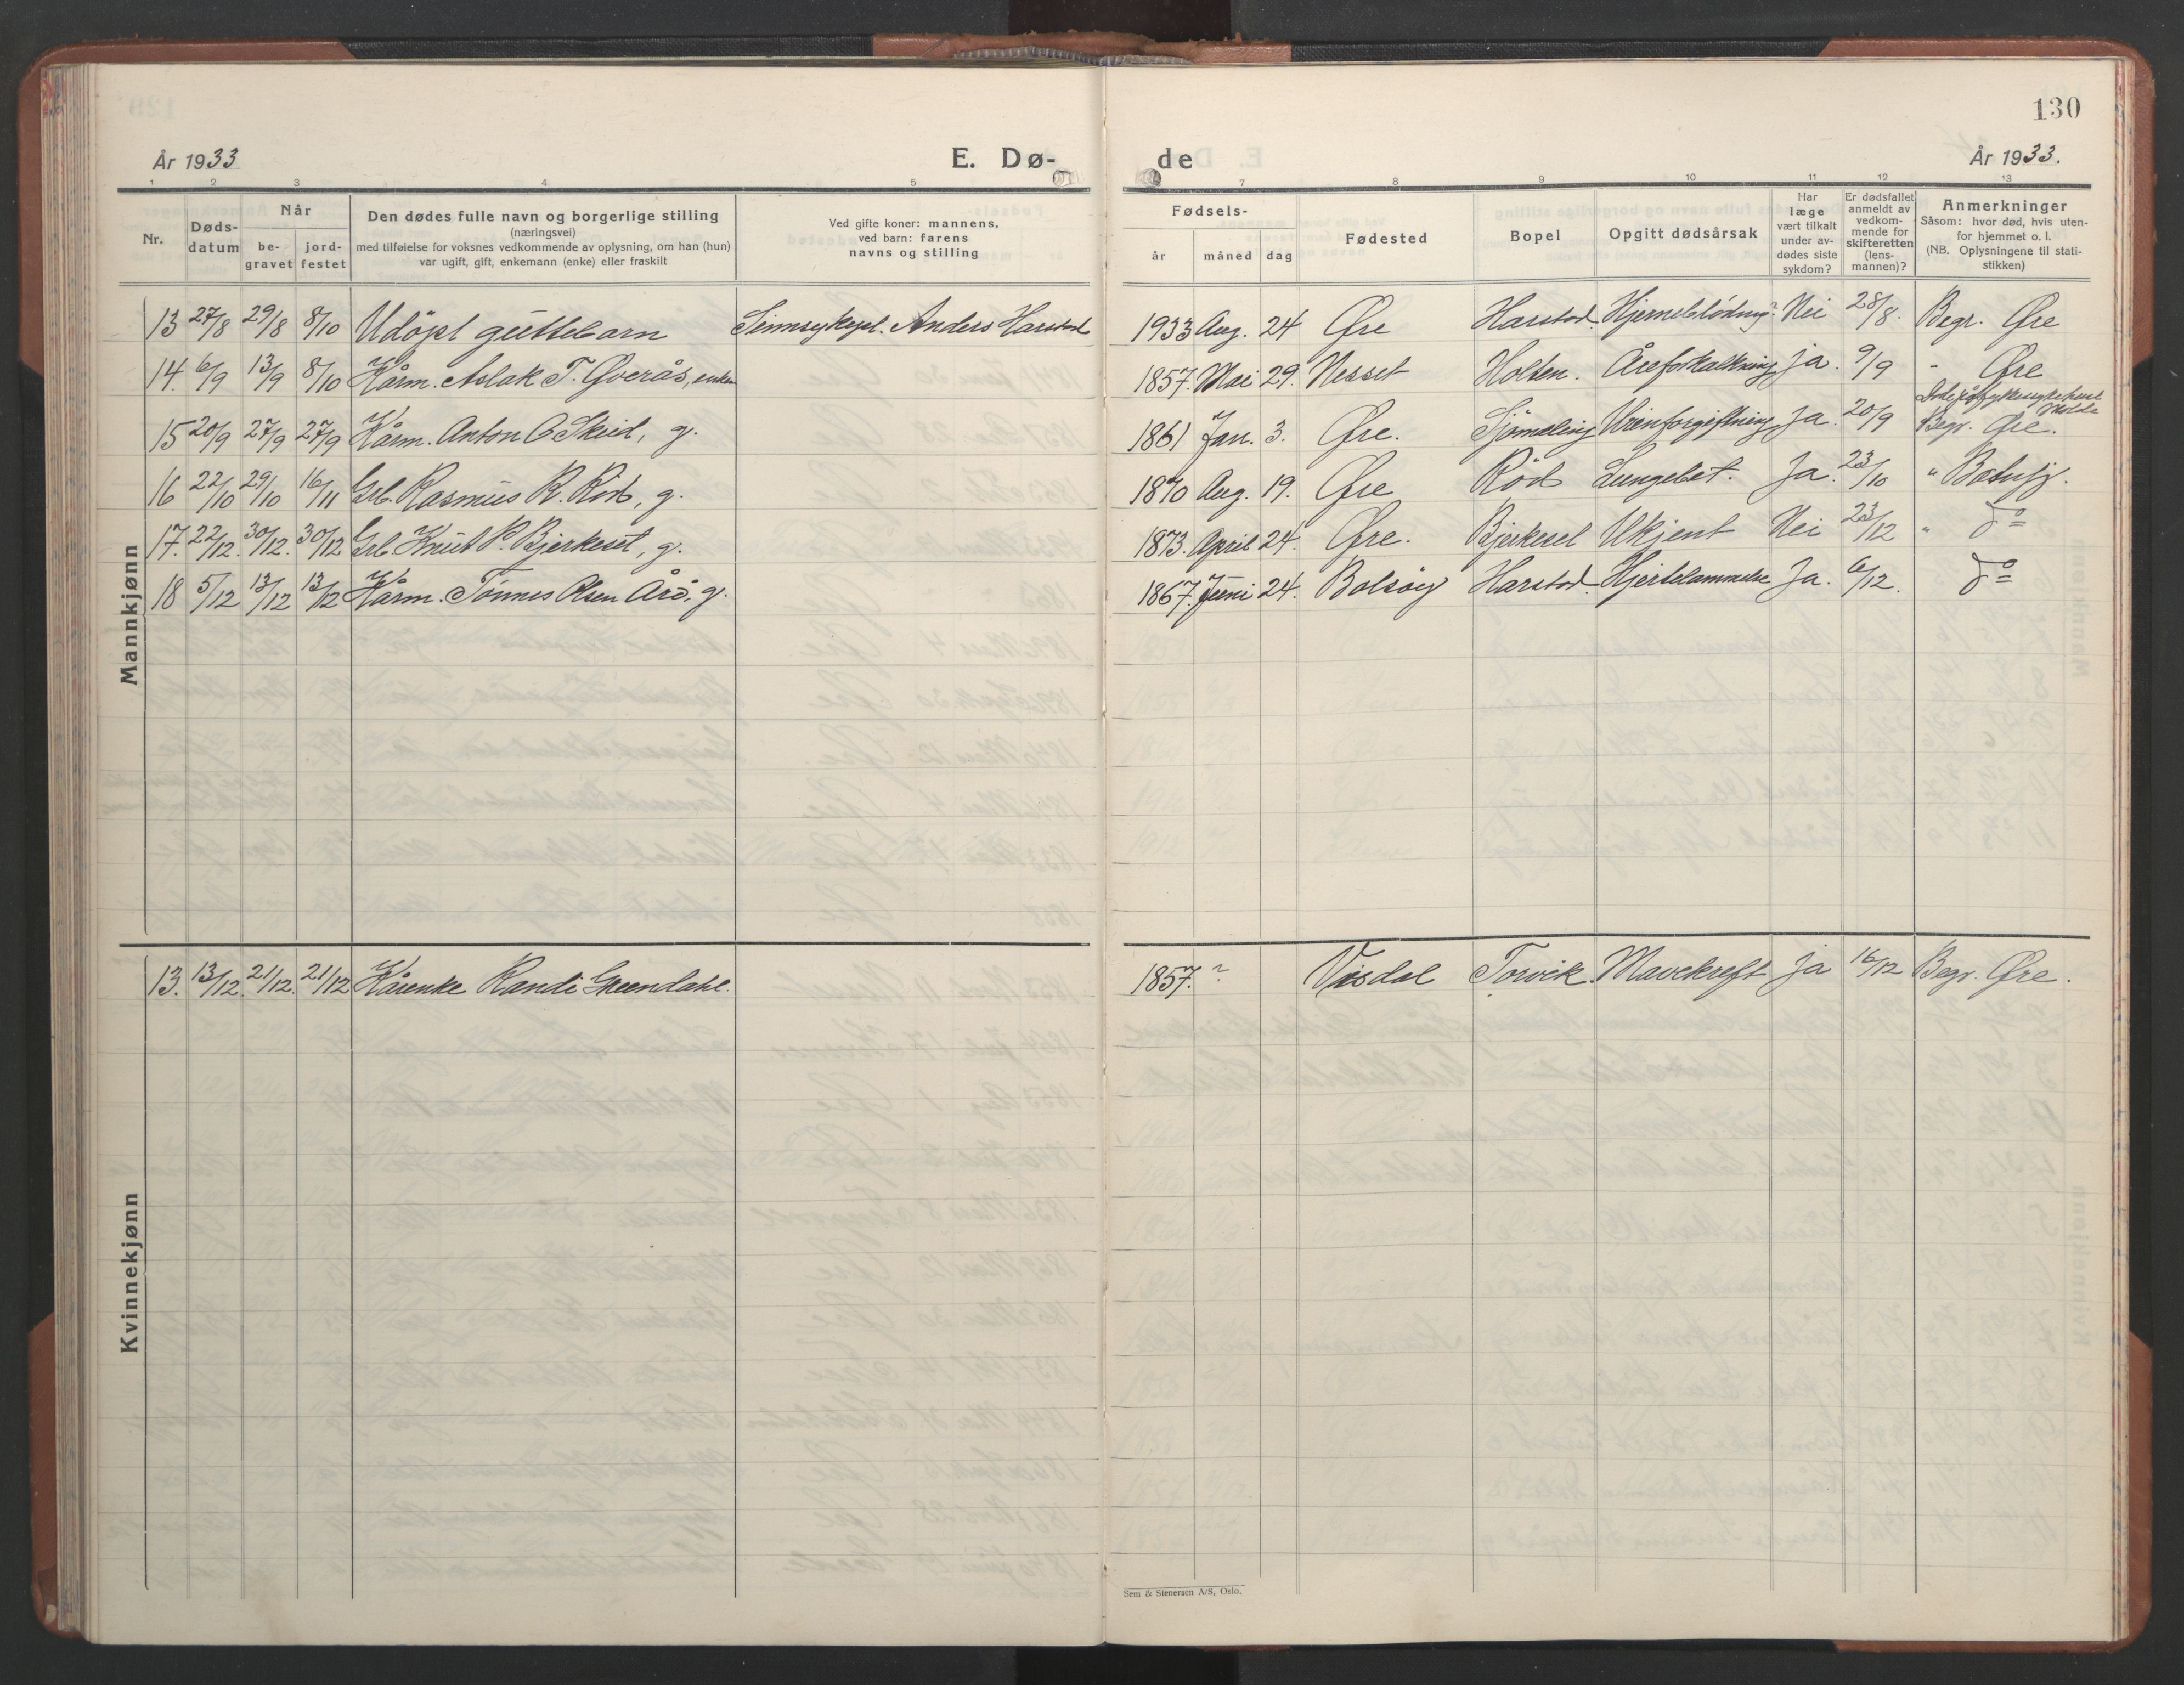 130
År 1933 E. Dø- de År 1933.
1 2 3 4 5 7 8 9 10 11 12 13
Nr.
Døds-
datum
Når
be-
gravet
jord-
festet
Den dødes fulle navn og borgerlige stilling
(næringsvei)
med tilføielse for voksnes vedkommende av oplysning, om han (hun)
var ugift, gift, enkemann (enke) eller fraskilt
Ved gifte koner: mannens,
ved barn: farens
navns og stilling
Fødsels-
år måned dag
Fødested
Bopel
Opgitt dødsårsak
Har
læge
vært tilkalt
under av-
dødes siste
sykdom?
Er dødsfallet
anmeldt av
vedkom-
mende for
skifteretten
(lens-
mannen)?
Anmerkninger
Såsom: hvor død, hvis uten-
for hjemmet o. l.
(NB. Oplysningene til stati-
stikken)
Mannkjønn
13 27/8 29/8 8/10 Udöpt guttebarn Sinnsykepl. Anders Harstad 1933 Aug. 24 Øre Harstad. Hjerneblödning? Nei 28/8. Begr. Øre
14. 6/9 13/9 8/10 Kårm. Aslak T. Gverås, enkem 1857. Mai 29. Nesset Holten. Åreforkalkning ja. 9/9 " Øre
Döde på fylkessykehuset
Molde
15 20/9 27/9 27/9 Kårm. Anton O Skeid, g. 1861 Jan. 3. Øre. Sjömeling Urinforgiftning Ja. 20/9 Begr. Øre.
16 22/10 29/10 16/11 Grb. Rasmus R. Röd, g. 1870 Aug. 19. Øre Röd Lungebet. Ja. 23/10 " Batnfj.
17. 22/12. 30/12. 30/12 Grb. Knut P. Bjerkeset, g. 1873. April 24. Øre. Bjerkeset Ukjent Nei 23/12 " do
18 5/12 13/12 13/12 Kårm. Tönnes Olsen Årö, g. 1867. Juni 24. Bolsöy Harstad. Hjertelammelse Ja. 6/12. do
Kvinnekjønn
13. 13/12. 21/12. 21/12 Kårenke Randi Greendahl. 1857. ? Visdal Torvik. Mavekreft ja 16/12 Begr. Øre.
Sem & Stenersen A/S, Oslo.